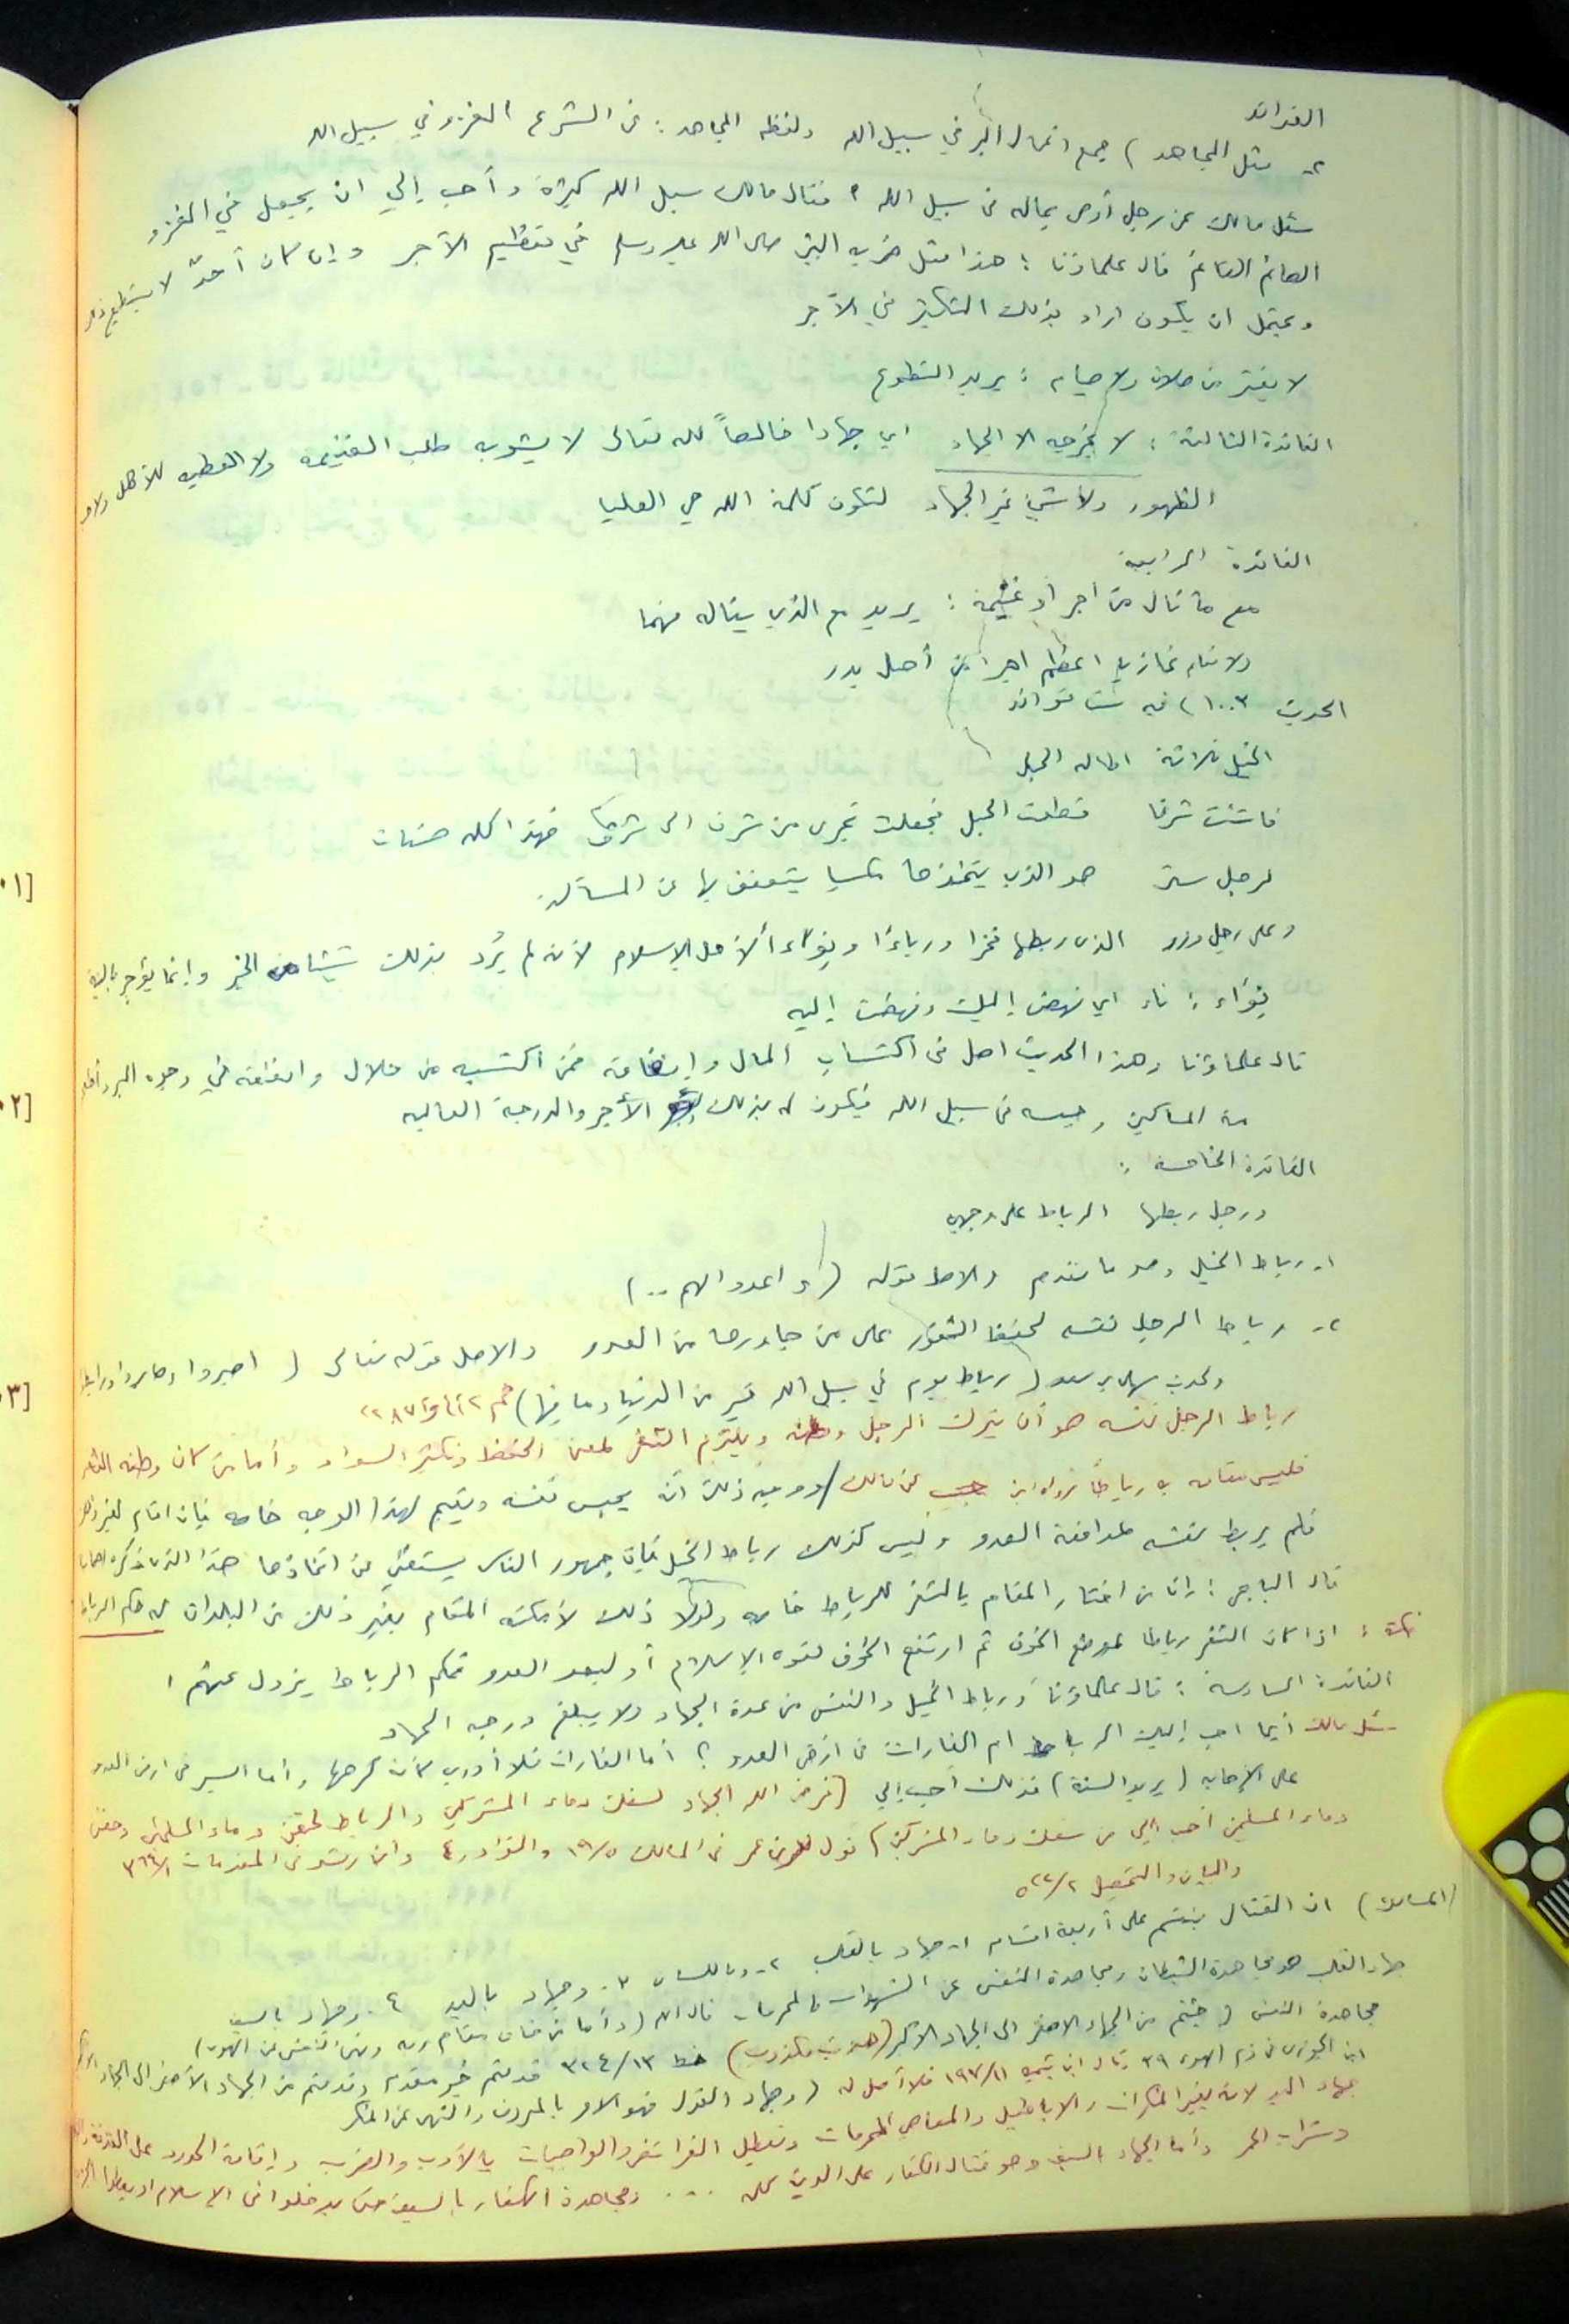 الفوائد
٢- مثل المجاهد) جميع اعمال البر في سبيل الله ولفظه المجاهد: في الشرع الغزو في سبيل الله
سئل مالك عن رجل أوصى بماله في سبيل الله؟ فقال مالك سبل الله كثيرة وأحب إلي ان يجعل في الغزو
الصائم القائم قال علماؤنا: هذا مثل ضربه النبي صلى الله عليه وسلم في تعظيم الأجر وإن كان أحدٌ لا يستطيع ذلك
ويحتمل ان يكون اراد بذلك التكثير في الأجر
لا يفتر من صلاة ولا صيام: يريد التطوع
الفائدة الثالثة: لا يخرجه الا الجهاد اي جهادا خالصاً لله تعالى لا يشوبه طلب الغنيمة ولا العطية للأهل ولا
الظهور ولا شيئ غير الجهاد لتكون كلمة الله هي العليا
الفائدة الرابعة
مع ما نال من اجر أو غنيمة: يريد مع الذي يناله منهما
ولا نعلم غازيا اعظم اجرا من أهل بدر
الحديث ١٠٠٣) فيه ست فوائد
الخيل ثلاثة اطال الحبل
فاستنت شرفا قطعت الحبل فجعلت تجري من شرف الى شرف فهذا كله حسنات
لرجل ستر هو الذي يتخذها تكسبا يتعفف بها عن المسألة
وعلى رجل وزر الذي ربطها فخرا ورياءً ونِواءً لأهل الإسلام لأنه لم يُرد بذلك شيئا من الخير وإنما يؤجر بالنية
نِواء: ناء اي نهض إليك ونهضت إليه
قال علماؤنا وهذا الحديث اصل في اكتساب المال وإنفاقه فمن اكتسبه من حلال وانفقه في وجوه البر
من المساكين وحبسه في سبيل الله فيكون له بذلك الأجر والدرجة العالية
الفائدة الخامسة:
ورجل ربطها الرباط على وجهين
١- رباط الخيل وهو ما تقدم والاصل قوله (واعدوا لهم ..)
٢- رباط الرجل نفسه لحفظ الثغور على من جاورها من العدو والاصل قوله تعالى (اصبروا وصابروا ورابطوا
ولحديث سهل بن سعد (رباط يوم في سبيل الله خير من الدنيا وما فيها)
رباط الرجل نفسه هو أن يترك الرجل وطنه ويلتزم الثغر لمعنى الحفظ وتكثير السواد وأما من كان وطنه الثغر
فليس مقامه به رباطاً رواه ابن حبيب عن مالك / ووجه ذلك أنه يحبس نفسه ويقيم لهذا الوجه خاصة فإن اقام لغير ذلك
فلم يربط نفسه لمدافعة العدو وليس كذلك رباط الخيل فإن جمهور الناس يستغني عن اتخاذها هذا الذي ذكره اصحابنا
قال الباجي: وإن من اختار المقام بالثغر للرباط خاصة ولولا ذلك لأمكنه المقام بغير ذلك من البلدان له حكم الرباط
نكتة: اذا كان الثغر رباطا لموضع الخوف ثم ارتفع الخوف لقوة الإسلام أو لبعد العدو فحكم الرباط يزول عنهم
الفائدة السادسة: قال علماؤنا ورباط الخيل والنفس من عدة الجهاد ولا يبلغ درجة الجهاد
سئل مالك أيما احب إليك الرباط ام الغارات في ارض العدو؟ أما الغارات فلا أدري كأنه كرهها وأما السير في ارض العدو
على الإصابة (يريد السنة) فذلك أحب إلي [فرض الله الجهاد لسفك دماء المشركين والرباط لحقن دماء المسلمين وحقن
دماء المسلمين أحب إلي من سفك دماء المشركين) قول ابن عمر في المسالك ١٩/٥ والنوادر ٤ وابن رشد في المقدمات ٣٦٩/١
والبيان والتحصيل ٥٢٢/٢
(المسالك) ان القتال ينقسم على أربعة اقسام ١- جهاد بالقلب ٢- وباللسان ٣- وجهاد باليد ٤- وجهاد بالسيف
جهاد القلب هو مجاهدة الشيطان ومجاهدة النفس عن الشهوات والمحرمات قال الله (وأما من خاف مقام ربه ونهى النفس عن الهوى)
مجاهدة النفس (جئتم من الجهاد الاصغر الى الجهاد الاكبر (حديث مكذوب) خط ٣٢٤/١٣ قدمتم خير مقدم وقدمتم من الجهاد الأصغر الى الجهاد الأكبر
ابن الجوزي في ذم الهوى ٣٩ قال ابن تيمية ١٩٧/١١ فلا أصل له (وجهاد القول فهو الامر بالمعروف والنهي عن المنكر
جهاد اليد لانه يغير المنكرات والاباطيل والمعاصي المحرمات وتعطيل الفرائض والواجبات بالأدب والضرب وإقامة الحدود على
وشراب الخمر وأما الجهاد بالسيف وهو قتال الكفار على الدين كله ... ومجاهدة الكفار بالسيف حتى يدخلوا في الإسلام او يعطوا الجزية
[٠١
[٠٢
[٠٣